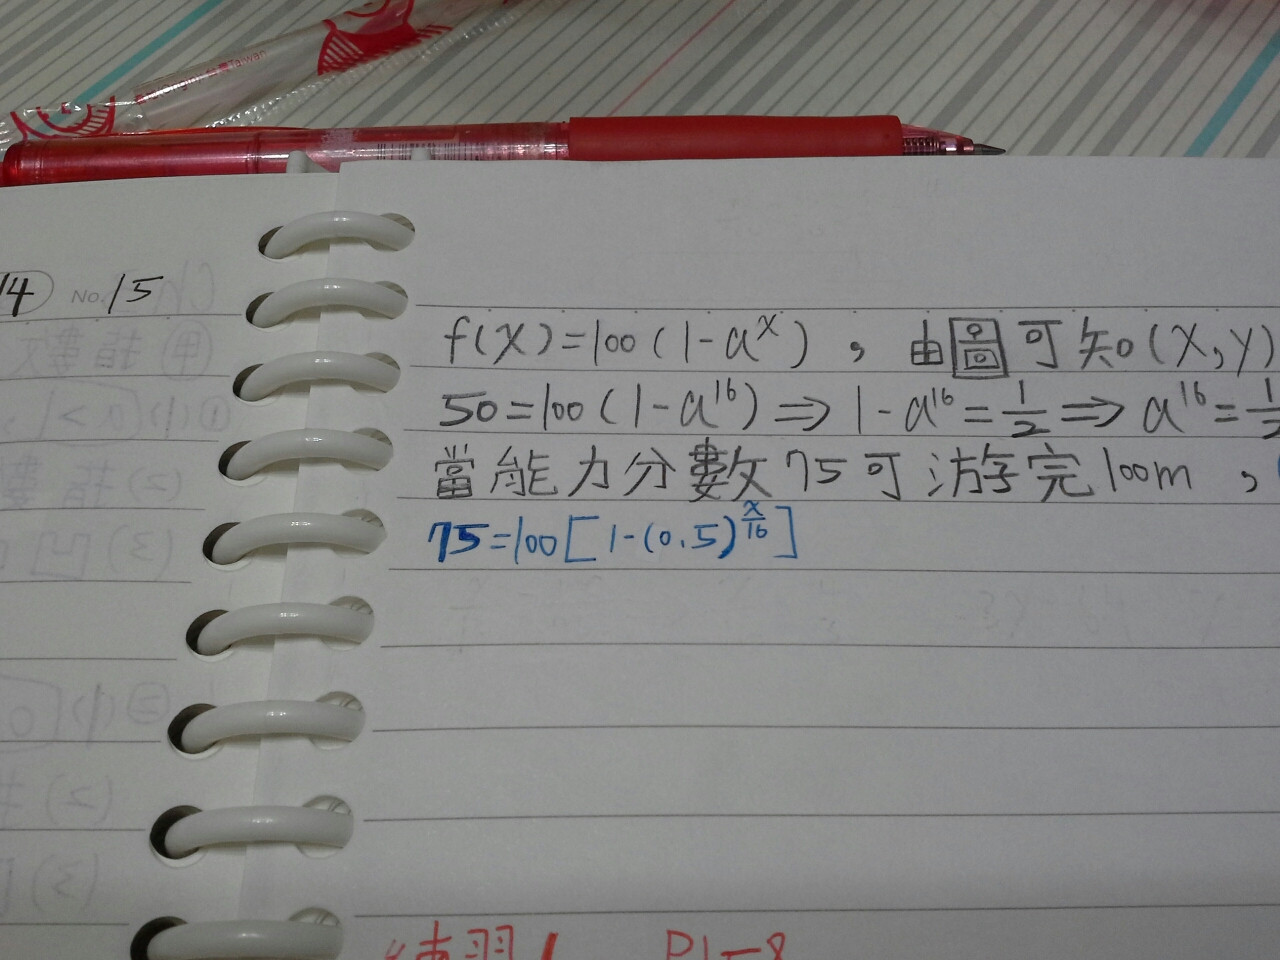 Taiwan
14 No. 15
f(x)=100(1-a^x)，由圖可知(x,y)
50=100(1-a^16)⇒1-a^16=1/2⇒a^16=1/2
當能力分數75可游完100m，
75=100[1-(0.5)^(x/16)]
練習1 P1-8